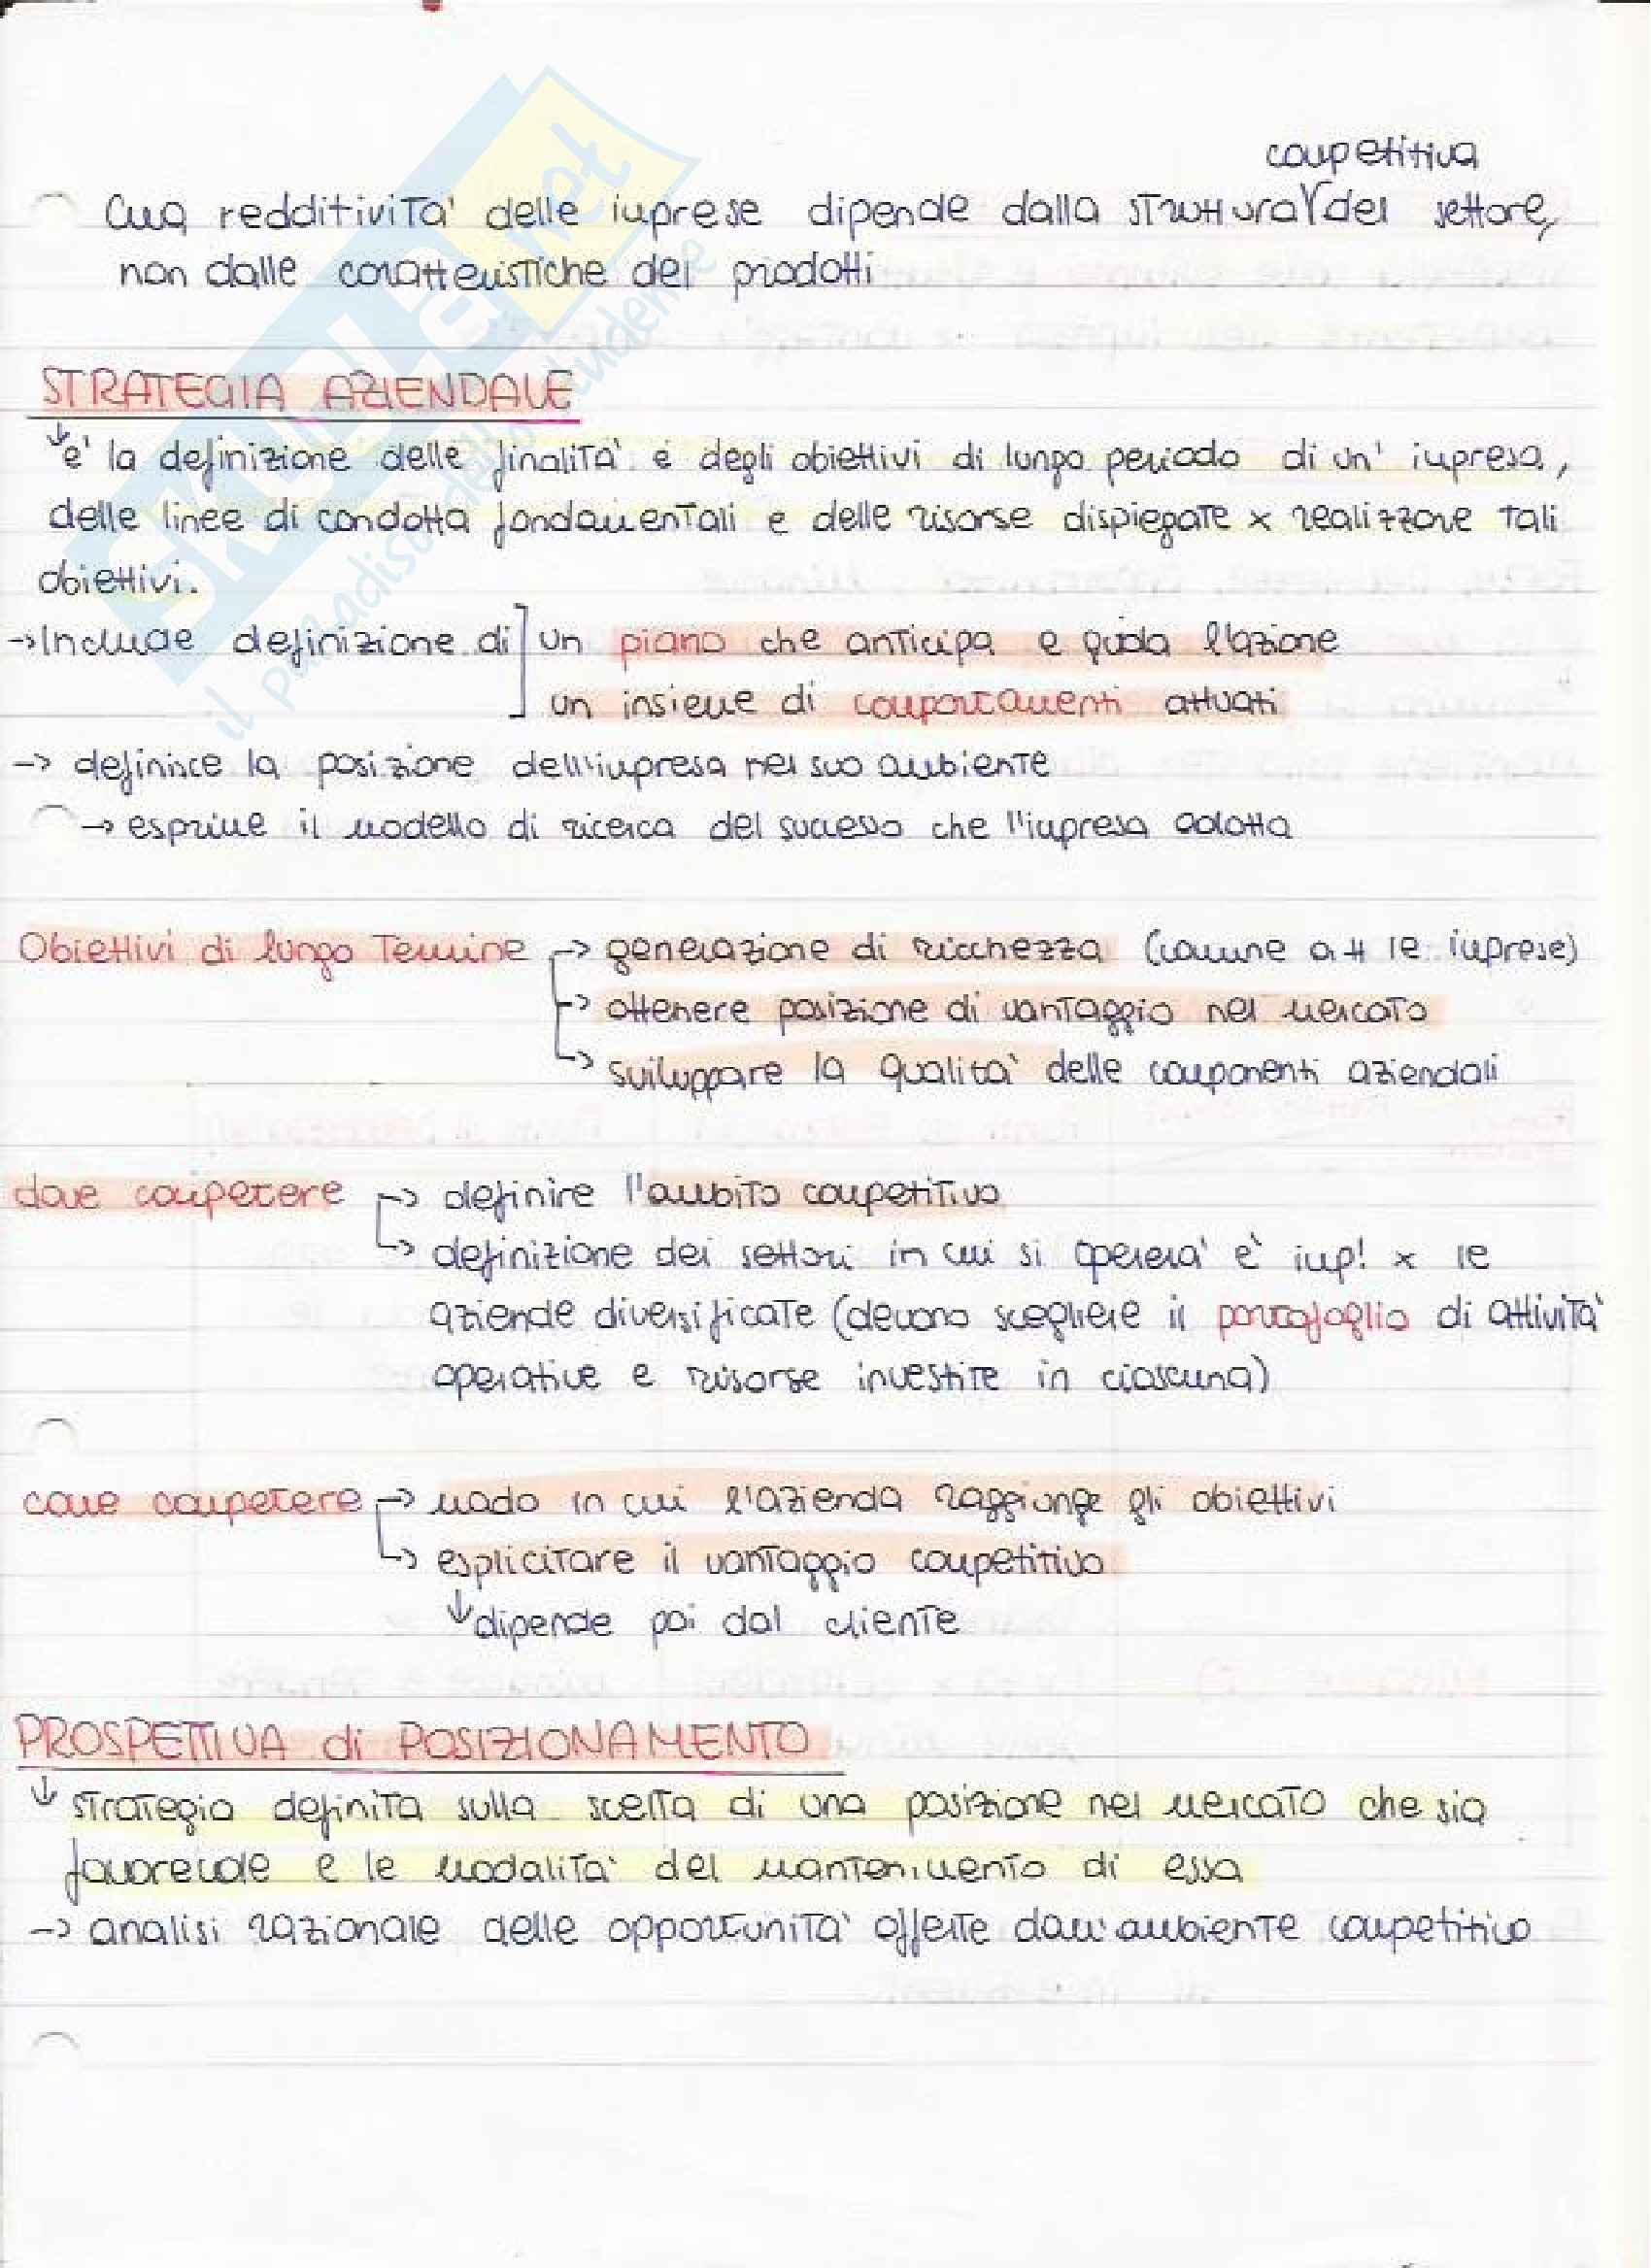 competitiva
La redditività delle imprese dipende dalla struttura del settore,
non dalle caratteristiche dei prodotti
STRATEGIA AZIENDALE
↓ è la definizione delle finalità e degli obiettivi di lungo periodo di un' impresa,
delle linee di condotta fondamentali e delle risorse dispiegate x realizzare tali
obiettivi.
→ Include definizione di ] un piano che anticipa e guida l'azione
un insieme di comportamenti attuati
→ definisce la posizione dell'impresa nel suo ambiente
→ esprime il modello di ricerca del successo che l'impresa adotta
Obiettivi di lungo Termine → generazione di ricchezza (comune a tt le imprese)
→ ottenere posizione di vantaggio nel mercato
→ sviluppare la qualità delle componenti aziendali
dove competere → definire l'ambito competitivo
→ definizione dei settori in cui si opererà è imp! x le
aziende diversificate (devono scegliere il portafoglio di attività
operative e risorse investite in ciascuna)
come competere → modo in cui l'azienda raggiunge gli obiettivi
→ esplicitare il vantaggio competitivo
↓ dipende poi dal cliente
PROSPETTIVA di POSIZIONAMENTO
↓ strategia definita sulla scelta di una posizione nel mercato che sia
favorevole e le modalità del mantenimento di essa
→ analisi razionale delle opportunità offerte dall'ambiente competitivo
SKUOLA.net
il paradiso dello studente